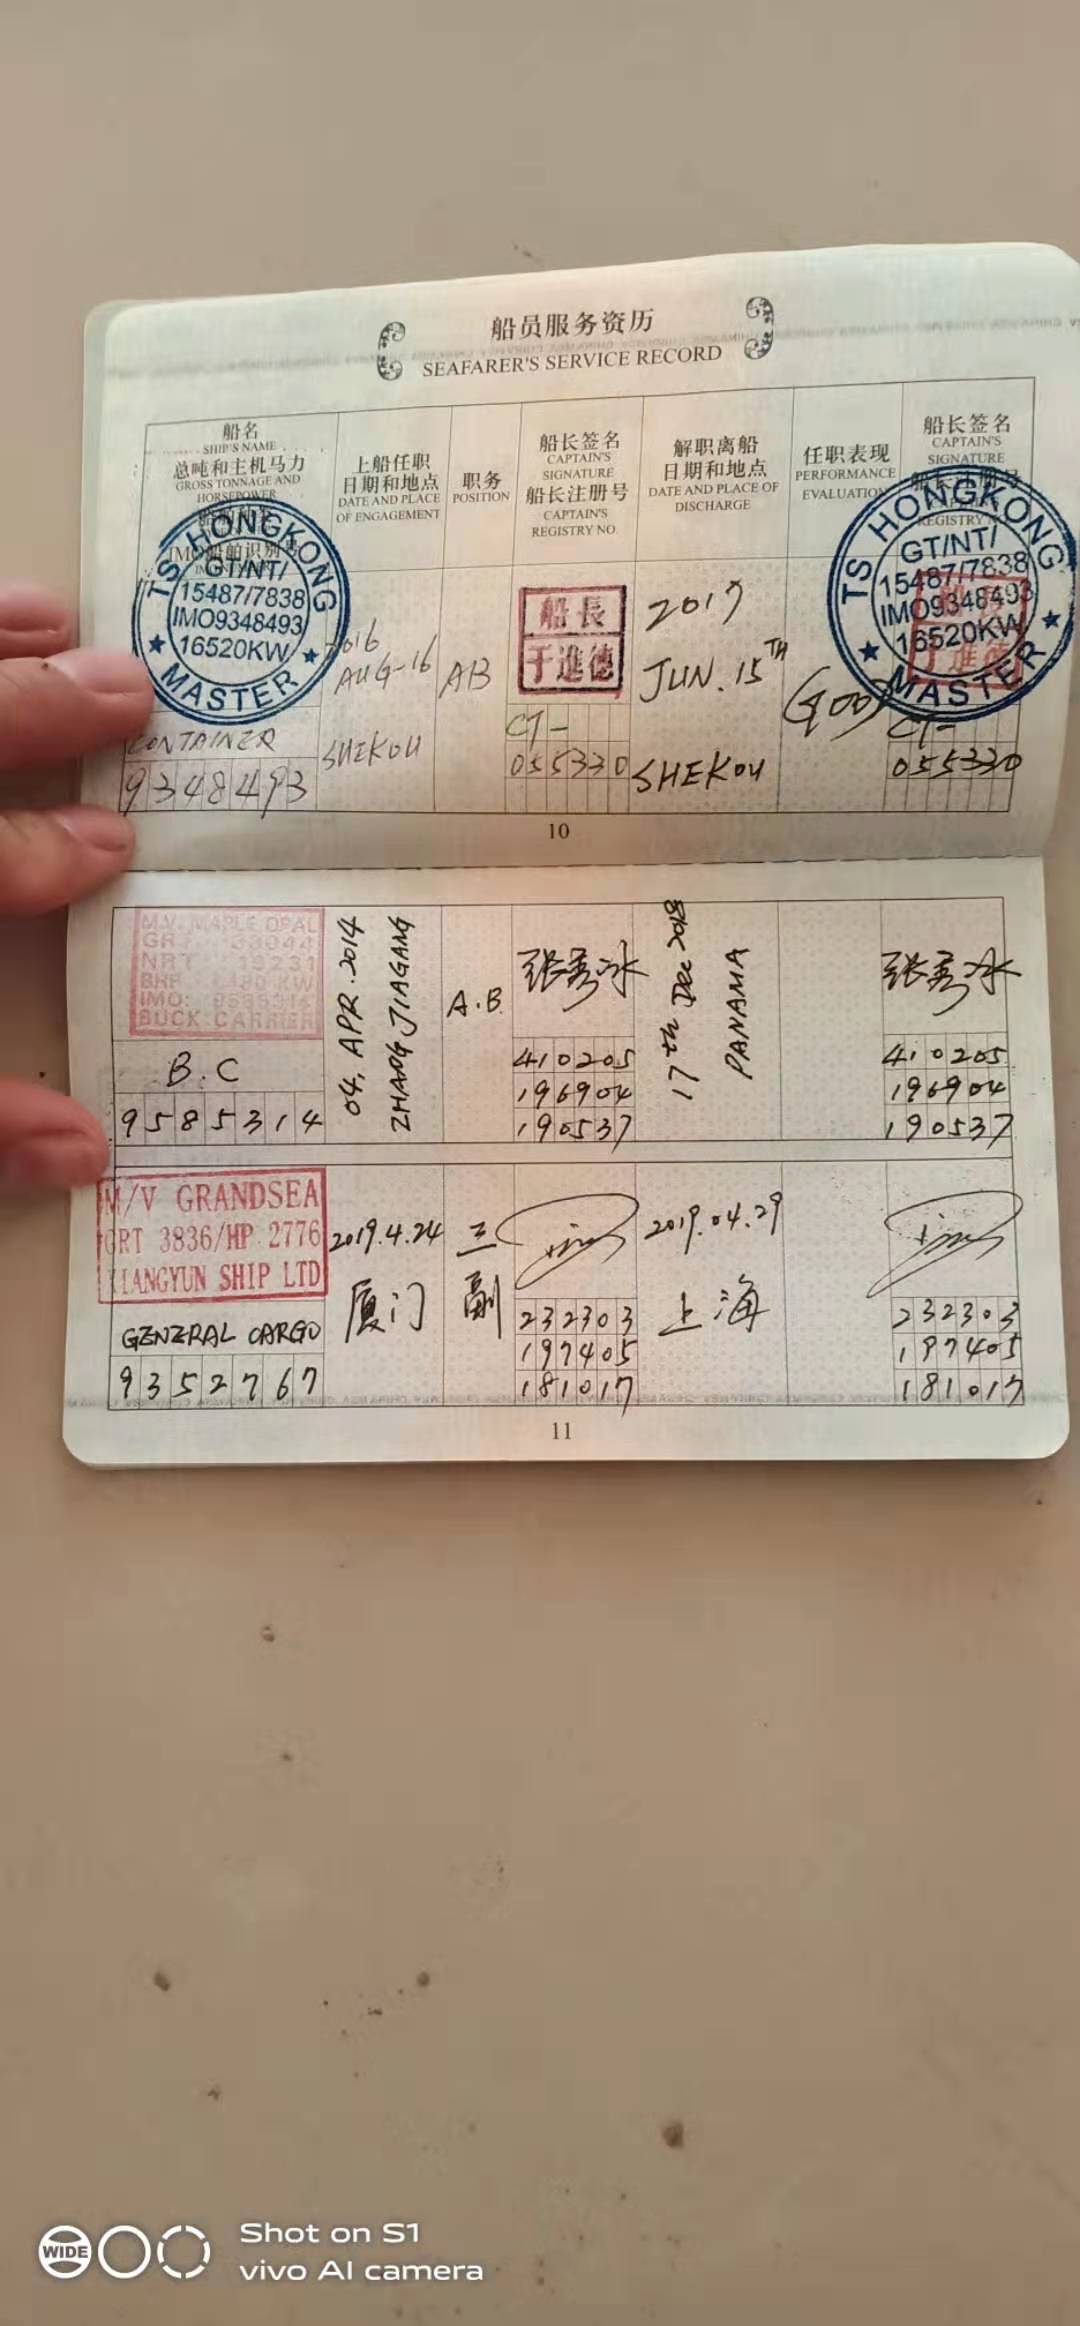 船员服务资历
SEAFARER'S SERVICE RECORD
船名
SHIP'S NAME
总吨和主机马力
GROSS TONNAGE AND
HORSEPOWER
IMO船舶识别号
上船任职
日期和地点
DATE AND PLACE
OF ENGAGEMENT
职务
POSITION
船长签名
CAPTAIN'S
SIGNATURE
船长注册号
CAPTAIN'S
REGISTRY NO.
解职离船
日期和地点
DATE AND PLACE OF
DISCHARGE
任职表现
PERFORMANCE
EVALUATION
船长签名
CAPTAIN'S
SIGNATURE
船长注册号
REGISTRY
TS HONGKONG
GT/NT/
15487/7838
IMO9348493
16520KW
MASTER
CONTAINER
9348493
2016
AUG-16
SHEKOU
AB
船長
于進德
CT-
055330
2017
JUN. 15TH
SHEKOU
GOOD
TS HONGKONG
GT/NT/
15487/7838
IMO9348493
16520KW
MASTER
于進德
CT-
055330
10
M.V. MAPLE OPAL
33044
NRT 19231
KW
IMO: 9585314
BUCK CARRIER
B.C
9585314
04, APR. 2014
ZHANG JIAGANG
A.B.
张秀冰
410205
196904
190537
17th Dec 2018
PANAMA
张秀冰
410205
196904
190537
M/V GRANDSEA
GRT 3836/HP 2776
XIANGYUN SHIP LTD
GENERAL CARGO
9352767
2019.4.24
厦门
三副
232303
197405
181017
2019.04.29
上海
232303
197405
181017
11
WIDE
Shot on S1
vivo AI camera